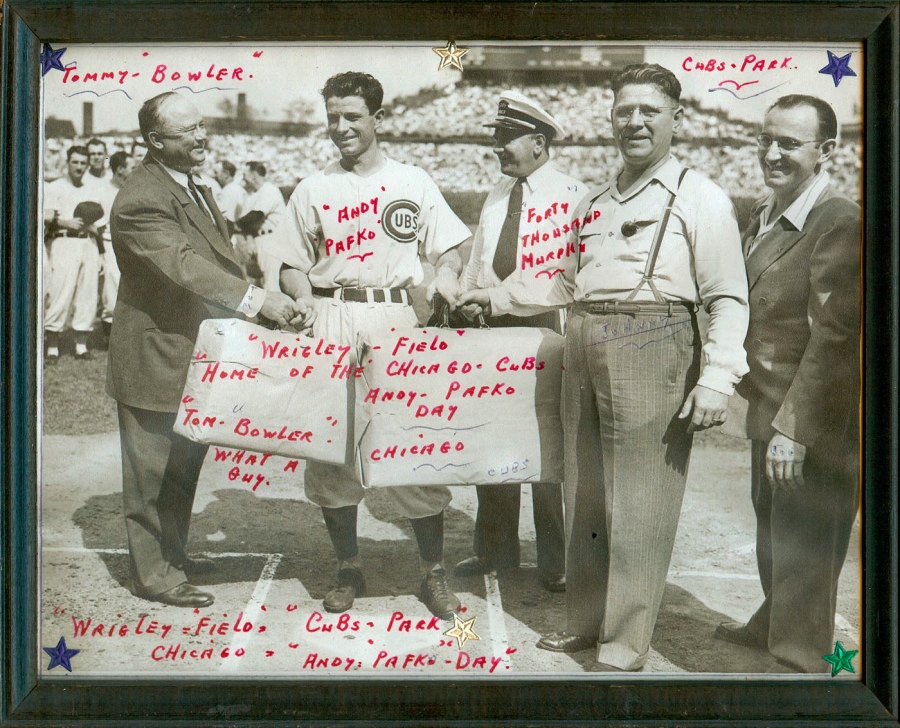 Tommy - "Bowler."
Cubs - Park.
CUBS
"Andy"
Pafko.
Forty
Thousand
Murphy
Johnny
"Wrigley" - Field"
"Home of the Chicago - Cubs
Andy - Pafko
Day
"Tom - Bowler."
Chicago
Cubs
What a
Guy.
"Wrigley - "Field" "Cubs - Park"
Chicago - "Andy - Pafko" - Day".